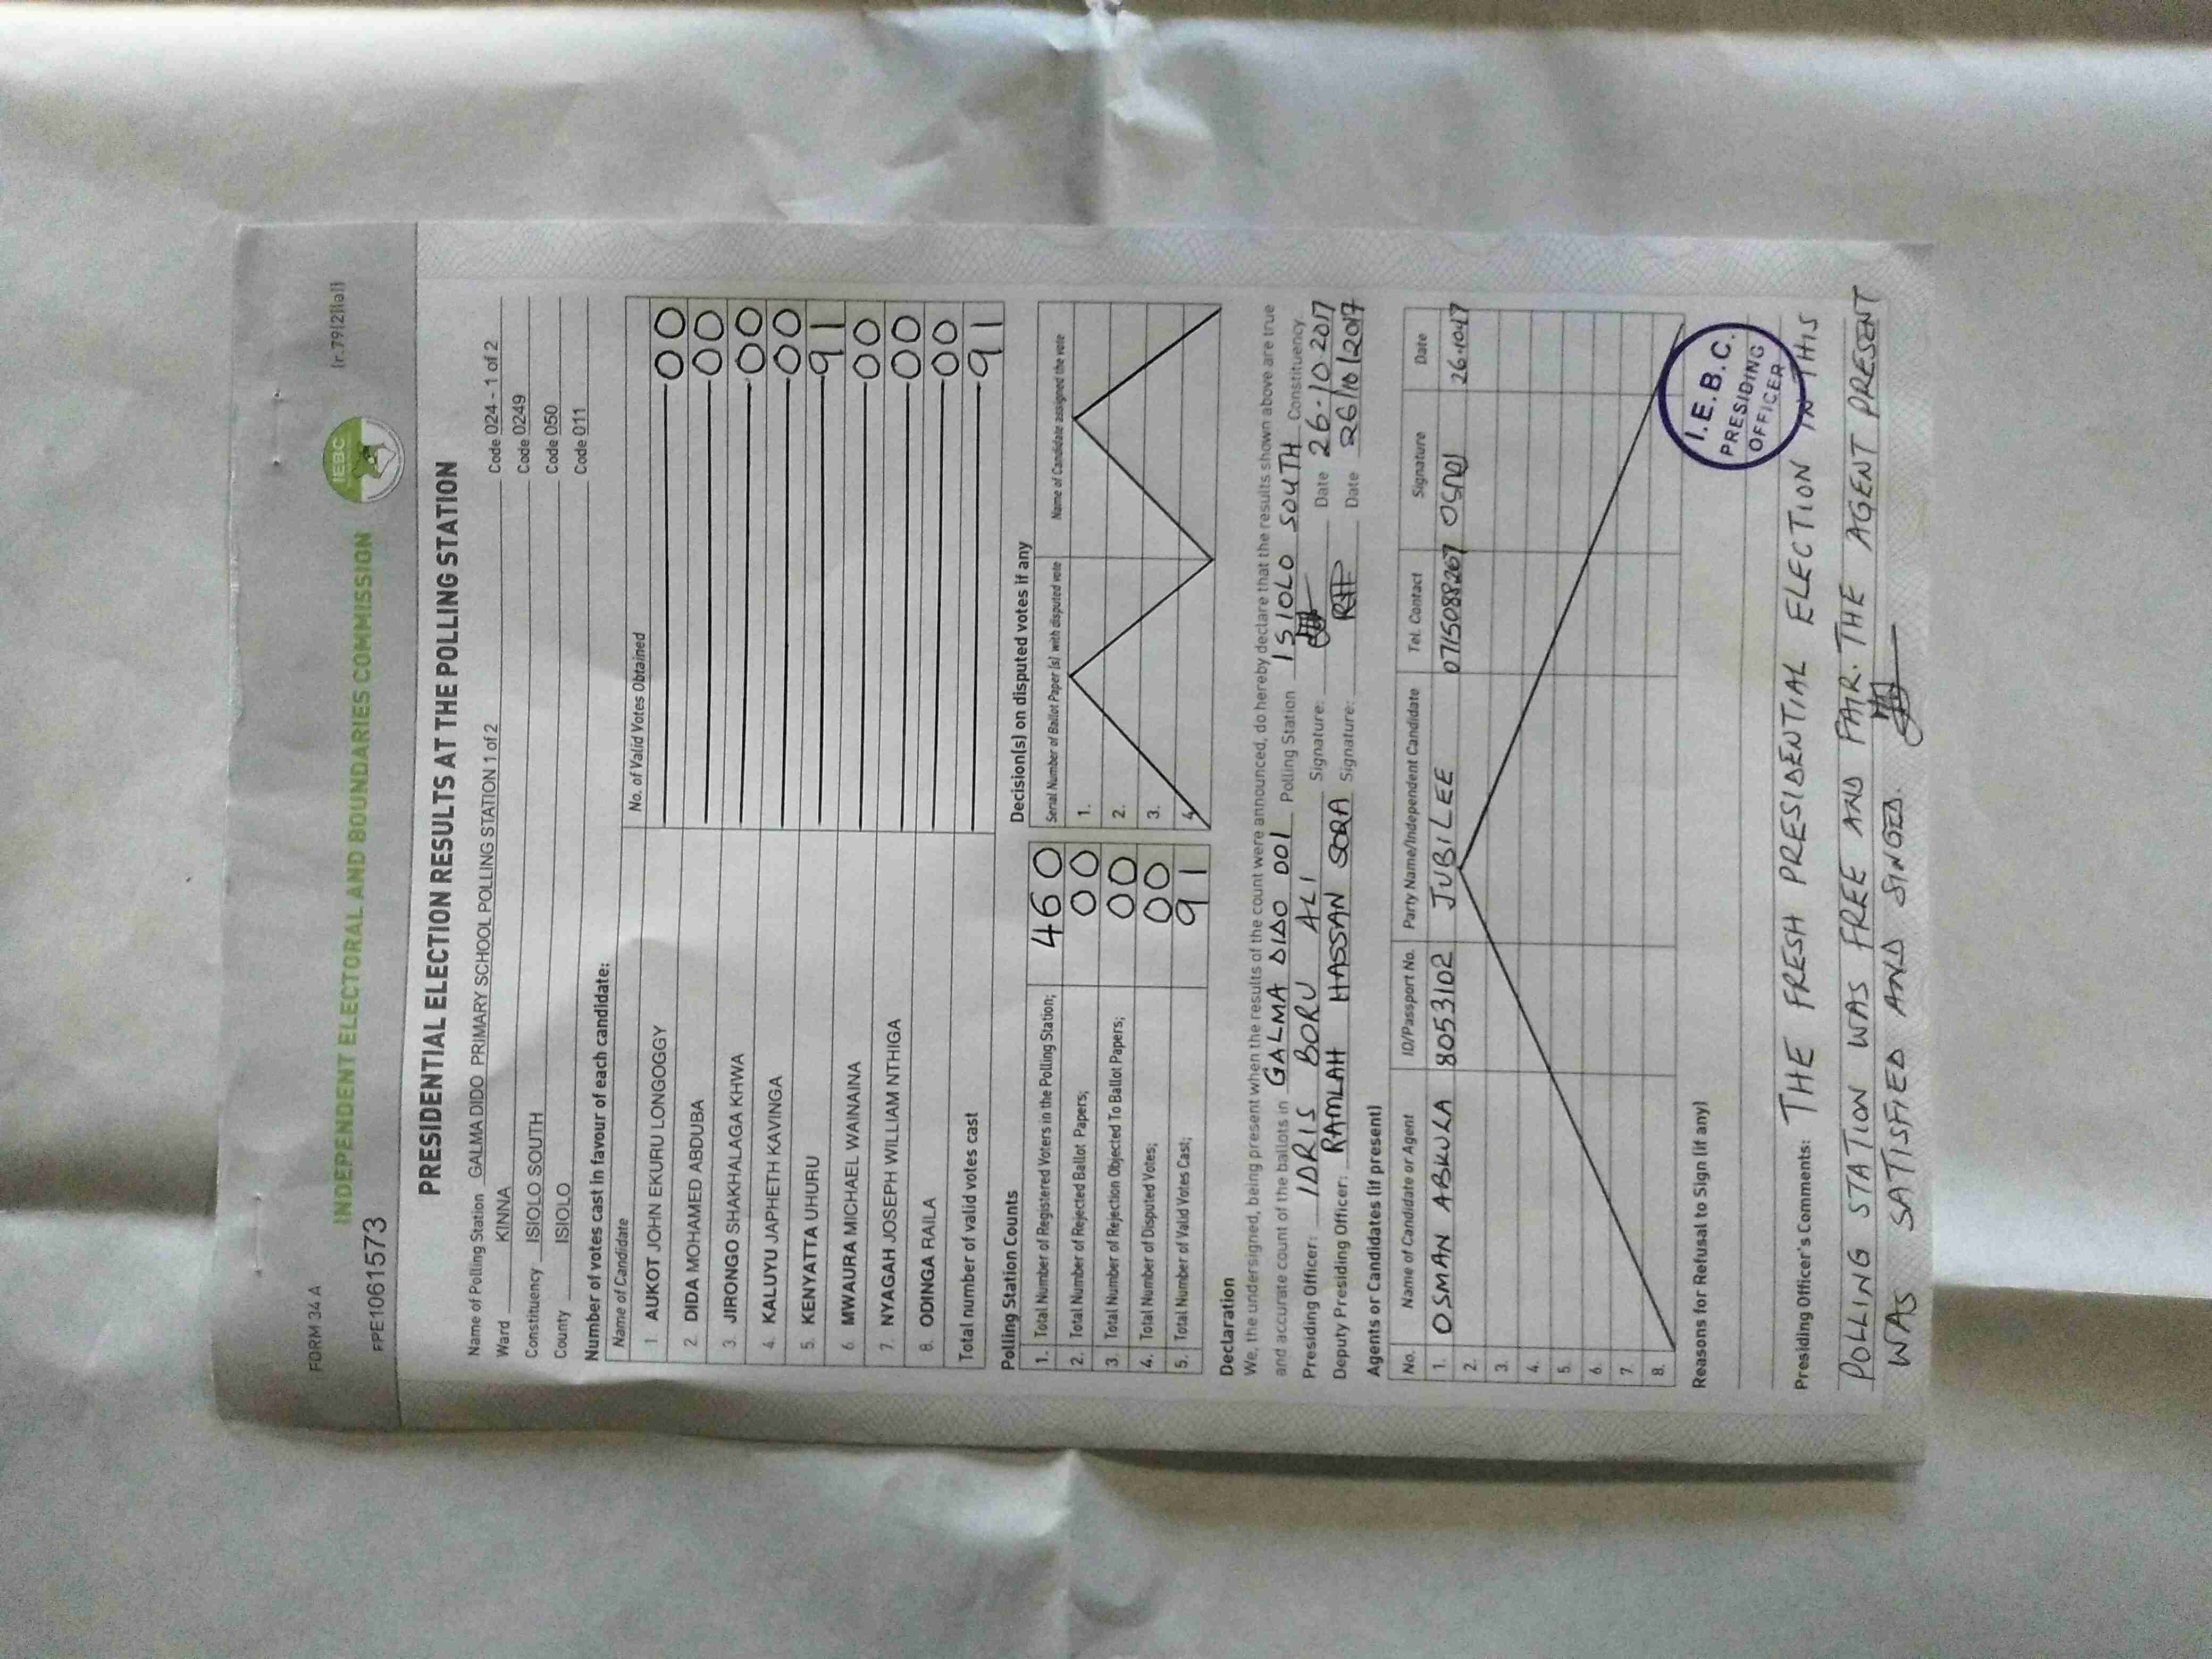 FORM 34 A
(r.79(2)(a))
IEBC
INDEPENDENT ELECTORAL AND BOUNDARIES COMMISSION
FPE1061573
PRESIDENTIAL ELECTION RESULTS AT THE POLLING STATION
Name of Polling Station GALMA DIDO PRIMARY SCHOOL POLLING STATION 1 of 2 Code 024 - 1 of 2
Ward KINNA Code 0249
Constituency ISIOLO SOUTH Code 050
County ISIOLO Code 011
Number of votes cast in favour of each candidate:
Name of Candidate No. of Valid Votes Obtained
1 AUKOT JOHN EKURU LONGOGGY 00
2 DIDA MOHAMED ABDUBA 00
3. JIRONGO SHAKHALAGA KHWA 00
4. KALUYU JAPHETH KAVINGA 00
5. KENYATTA UHURU 91
6. MWAURA MICHAEL WAINAINA 00
7. NYAGAH JOSEPH WILLIAM NTHIGA 00
8. ODINGA RAILA 00
Total number of valid votes cast 91
Polling Station Counts
1. Total Number of Registered Voters in the Polling Station; 460
2. Total Number of Rejected Ballot Papers; 00
3. Total Number of Rejection Objected To Ballot Papers; 00
4. Total Number of Disputed Votes; 00
5. Total Number of Valid Votes Cast; 91
Decision(s) on disputed votes if any
Serial Number of Ballot Paper (s) with disputed vote Name of Candidate assigned the vote
1.
2.
3.
4.
Declaration
We, the undersigned, being present when the results of the count were announced, do hereby declare that the results shown above are true
and accurate count of the ballots in GALMA DIDO 001 Polling Station ISIOLO SOUTH Constituency.
Presiding Officer: IDRIS BORU ALI Signature: Date 26-10-2017
Deputy Presiding Officer: RAMLAH HASSAN SORA Signature: RH Date 26/10/2017
Agents or Candidates (if present)
No. Name of Candidate or Agent ID/Passport No. Party Name/Independent Candidate Tel. Contact Signature Date
1. OSMAN ABKULA 8053102 JUBILEE 0715088267 26.10.17
2.
3.
4.
5.
6.
7.
8.
Reasons for Refusal to Sign (if any)
I.E.B.C.
PRESIDING
OFFICER
Presiding Officer's Comments: THE FRESH PRESIDENTIAL ELECTION IN THIS
POLLING STATION WAS FREE AND FAIR. THE AGENT PRESENT
WAS SATISFIED AND SINGED.